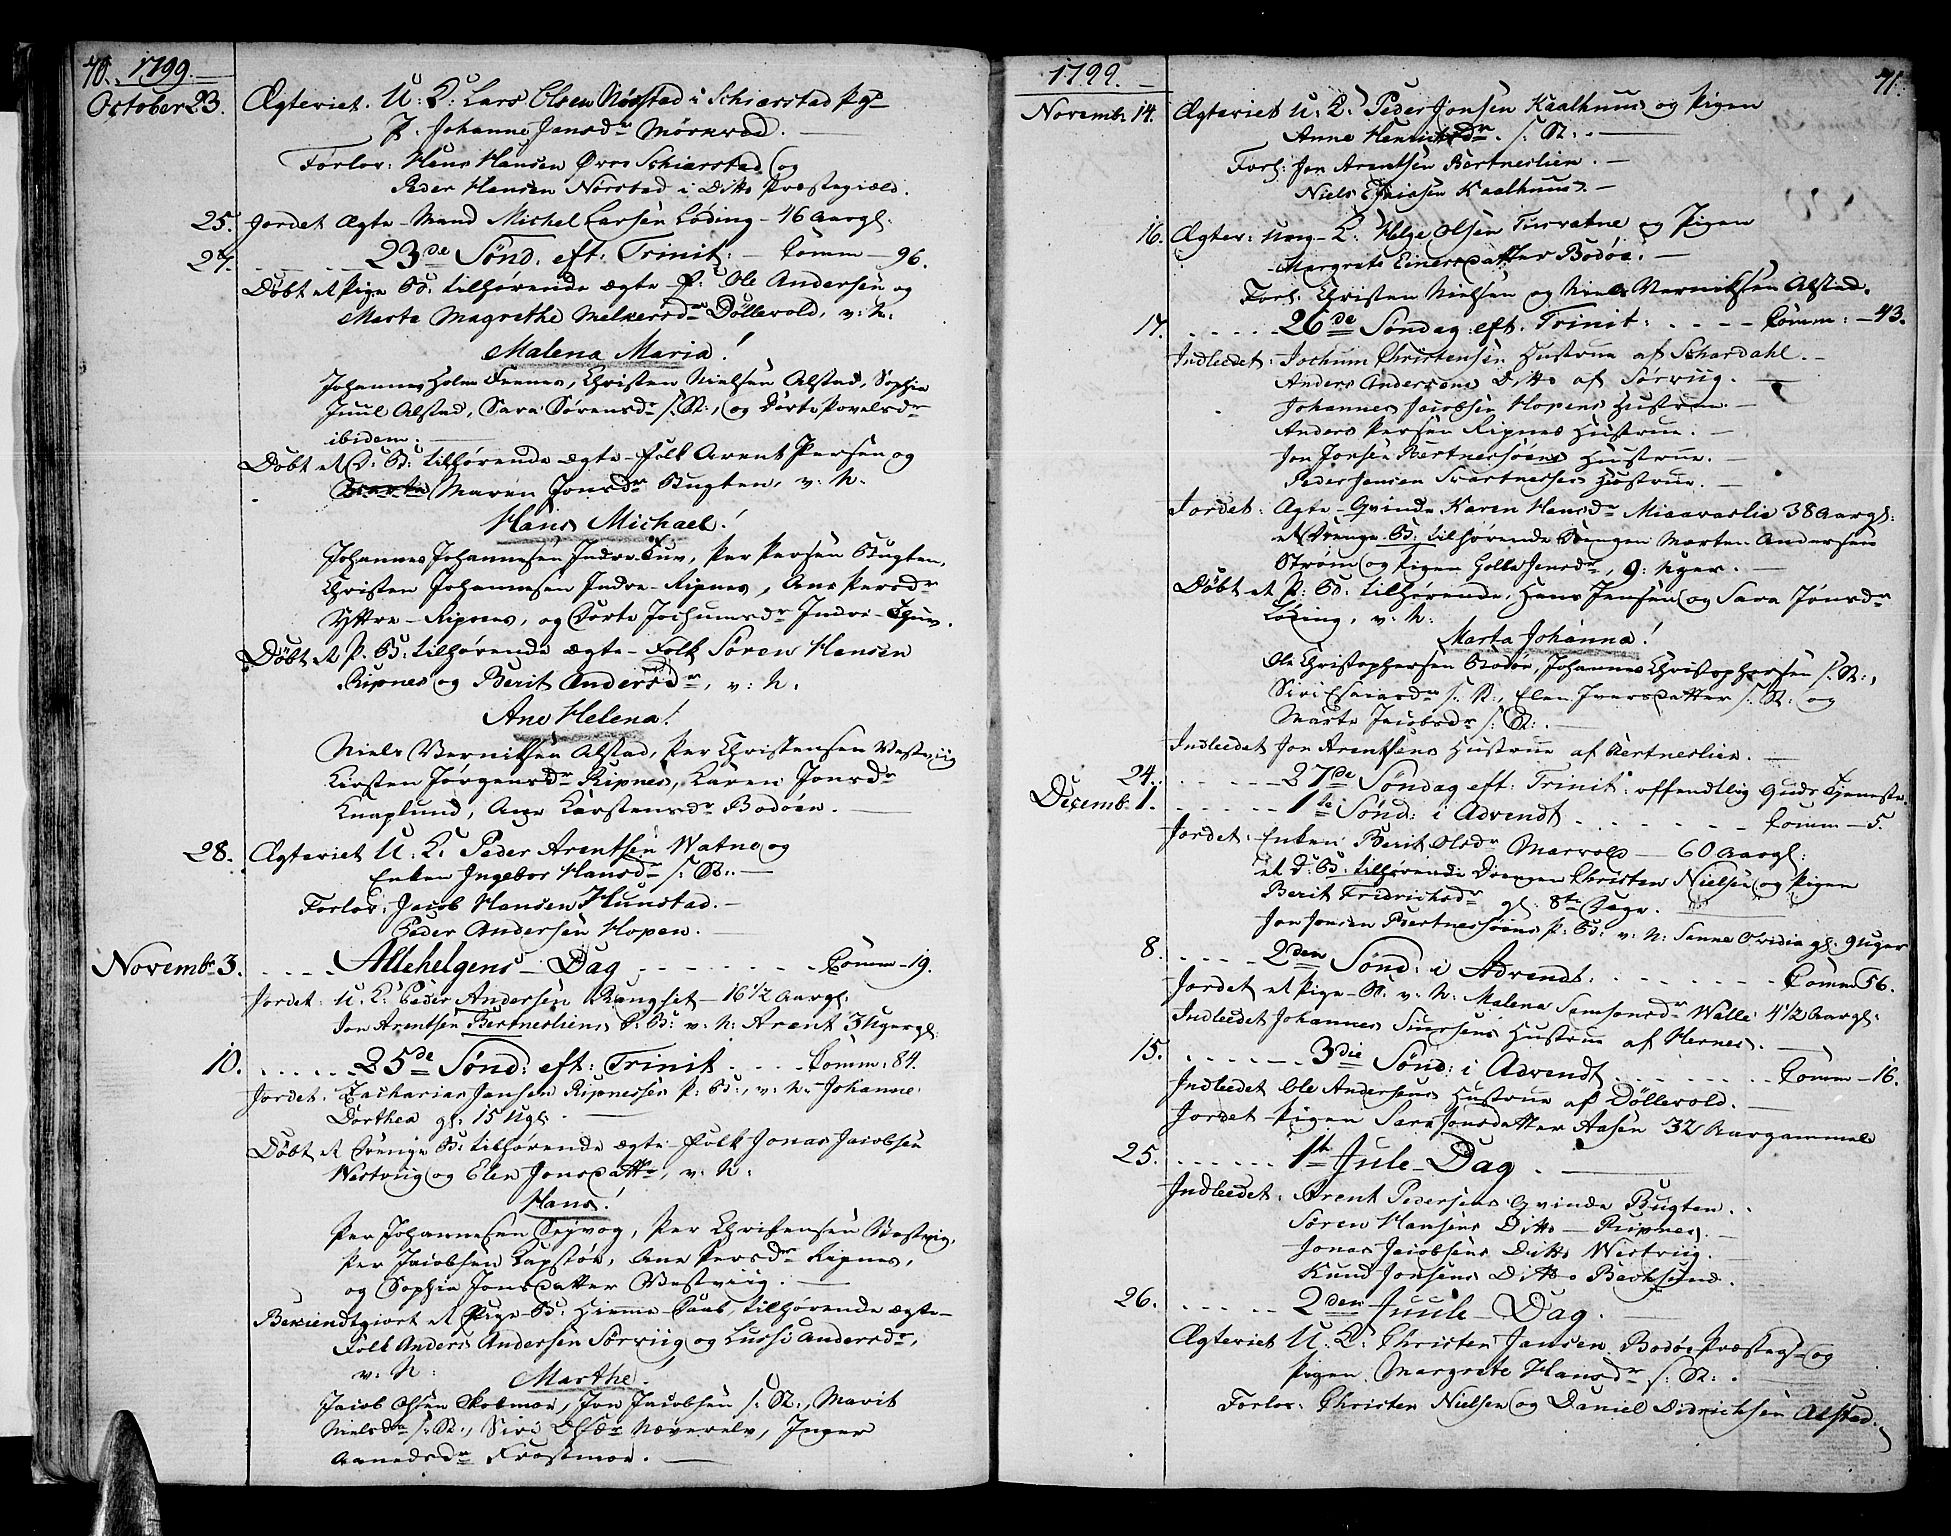 70. 1799.
October 23. Ægteviet. U: K: Lars Olsen Nörstad i Schierstad Pg
P. Johanne Jansdr Mörkved.
Forlov: Hans Hansen Øvre Schierstad og
Peder Hansen Nörstad i Ditto Præstegield.
25. Jordet Ægte-Mand Michel Larsen Löding - 46 Aar gl:
27. 23de Sönd: eft: Trinit: - Comm - 96.
Döbt et Pige B: tilhörende ægte-F: Ole Andersen og
Marta Magrethe Melkersdr Döllevold, v: N:
Malena Maria!
Johannes Holm, Christen Nielsen Alstad, Sophia
Juul Alstad, Sara Sörensdr s: St:, og Dorte Povelsdr
ibidem:
Döbt et D: B: tilhörende ægte-Folk Arent Persen og
Maren Jonsdr Bugten, v: N:
Hans Michael!
Johannes Johannesen Indre-Tuv, Per Persen Bugten,
Christen Johannesen Indre-Ripnes, Ane Persdr
Yttre-Ripnes, og Dorte Jochumsdr Indre-Tuv.
Döbt et P: B: tilhörende ægte-Folk Sören Hansen
Ripnes og Berit Andersdr, v: N:
Ane Helena!
Niels Berntsen Alstad, Per Christensen Vestviig
Kirsten Jörgensdr Ripnes, Karen Jonsdr
Knaplund, Ane Karstensdr Bodöen.
28. Ægteviet U: K: Peder Arentsen Watne og
Enken Ingebor Hansdr s: St:
Forlov: Jacob Hansen Hunstad.
Peder Andersen Hopen.
Novembr 3. Allehelgens-Dag - Comm - 19.
Jordet: U: K: Peder Andersen Kangset - 16 1/2 Aar gl:
Jon Arentsen Bertnesliens D: B: v: N: Arent 3 Uger gl:
10. 25de Sönd: eft: Trinit - Comm: 84.
Jordet: Zacharias Jansen Ripnessen P: B:, v: N: Johanna
Dorthea gl: 15 Ug:
Döbt et Drenge B: tilhörende ægte-Folk Jonas Jacobsen
Westviig og Elen Jonsdatter, v: N:
Hans!
Per Johannesen Seivog, Per Christensen Vestviig,
Per Jacobsen Kapstöe, Ane Persdr Ripnes,
og Sophia Jonsdatter Vestviig.
Bekiendtgiort et Pige-B: Hieme-Daab, tilhörende ægte-
Folk Anders Andersen Sörviig og Lussi Andersdr,
v: N: Marthe!
Jacob Olsen Skolmoe, Jon Jacobsen s: St:, Marit
Nielsdr s: St:, Siri Olsdr Næverelv, Inger
Frostmoe.
1799. 71.
Novembr 14. Ægteviet U: K: Peder Jonsen Kaalhuus og Pigen
Anne Henrichsdr s: St:
Forl: Jon Arentsen Bertneslien.
Niels Esaiasen Kaalhuus.
16. Ægtev: Ung-K: Helge Olsen Tuvvatne og Pigen
Margrete Einersdatter Bodöe.
Forl: Christen Nielsen og Niels Berntsen Alstad.
17. 26de Söndag eft: Trinit: Comm: - 43.
Indleedet: Jochum Christensen Hustrue af Schardahl.
Anders Andersens Ditto af Sörviig.
Johannes Jacobsen Hopens Hustrue.
Anders Persen Ripnes Hustrue.
Jon Jonsen Bertnessöens Hustrue.
Peder Jensen Svartnesses Hustrue.
Jordet: Ægte-Qvinde Karen Hansdr 38 Aar gl:
et Drenge B: tilhörende Drengen Morten Andersen
Ström og Pigen Jensdr, 9: Uger.
Döbt et P: B: tilhörende, Hans Jensen og Sara Jönsdr
Löding, v: N:
Marta Johanna!
Ole Christophersen Bodöe, Johannes Christophersen s: St:,
Siri Esaiasdr s: St:, Elen Iversdatter s: St: og
Marta Jacobsdr s: St:
Indleedet Jon Arentsens Hustrue af Bertneslien.
24. 27de Söndag eft: Trinit: offendtlig Guds Tjeneste.
Decembr 1. 1te Sönd: i Advendt Comm - 5.
Jordet: Enken Berit Olsdr Marvold - 60 Aar gl:
et D: B: tilhörende Drengen Christen Nielsen og Pigen
Berit Fridrichsdr gl: 8te Dage.
Jon Jonsen Bertnessöens P: B: v: N: Sanna Ovidia gl: 9 Uger
8. 2den Sönd: i Advendt. Comm 56.
Jordet et Pige-B: v: N: Malena Samsonsdr Walle 4 1/2 Aar gl:
Indleedet Johannes Hustrue af Hernes.
15. 3die Sönd: i Advendt Comm - 16.
Indleedet Ole Andersens Hustrue af Döllevold.
Jordet Pigen Sara Jonsdatter Aasen 32 Aar gammel.
25. 1te Jule-Dag.
Indleedet: Arent Pedersens Qvinde Bugten.
Sören Hansens Ditto - Ripnes.
Jonas Jacobsens Ditto Westviig.
Knud Jonsens Ditto Bachsund.
26. 2den Juule-Dag.
Ægteviet U: K: Christen Jansen Bodöe Præsteg: og
Pigen Margrete Hansdr s: St:
Forlov: Christen Nielsen og Daniel Didrichsen Alstad.